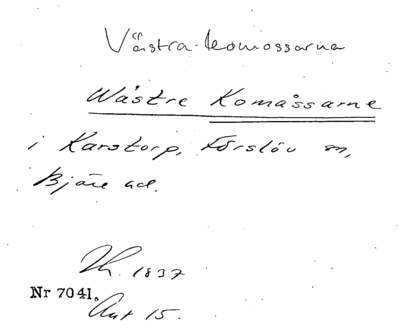 Västra komossarna
Wästre Komåssarne
i Karstorp, Förslöv sn,
Bjäre hd.
Th. 1837
Nr 7041.
Akt 15.